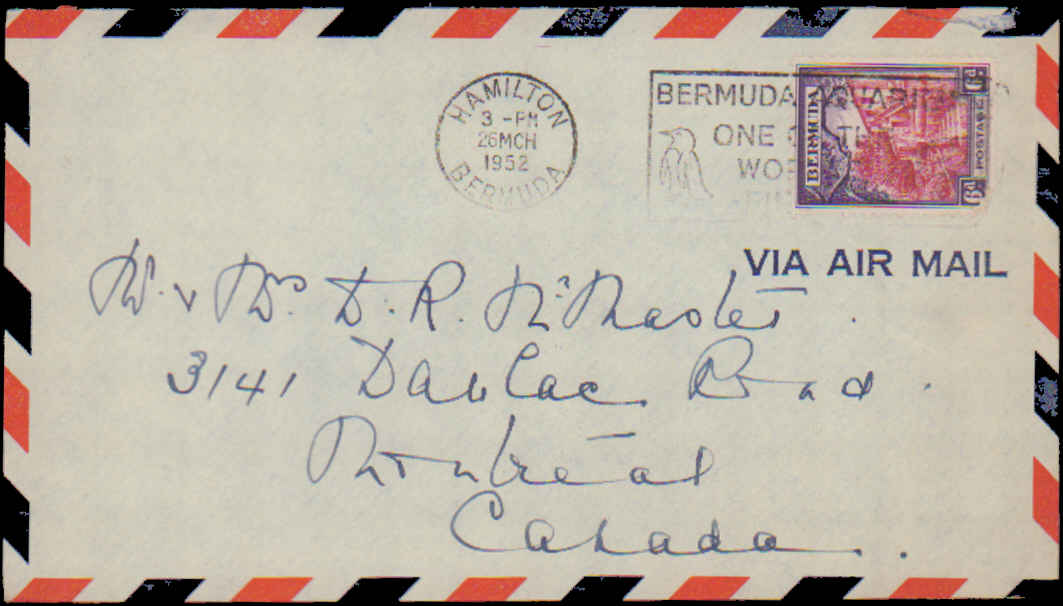 HAMILTON
3 - PM
26MCH
1952
BERMUDA
BERMUDA AQUARI
ONE
WOR
BERMUDA
POSTAGE
VIA AIR MAIL
Mr. & Mrs. D. R. McMaster.
3141 Daulac Road.
Montréal
Canada.